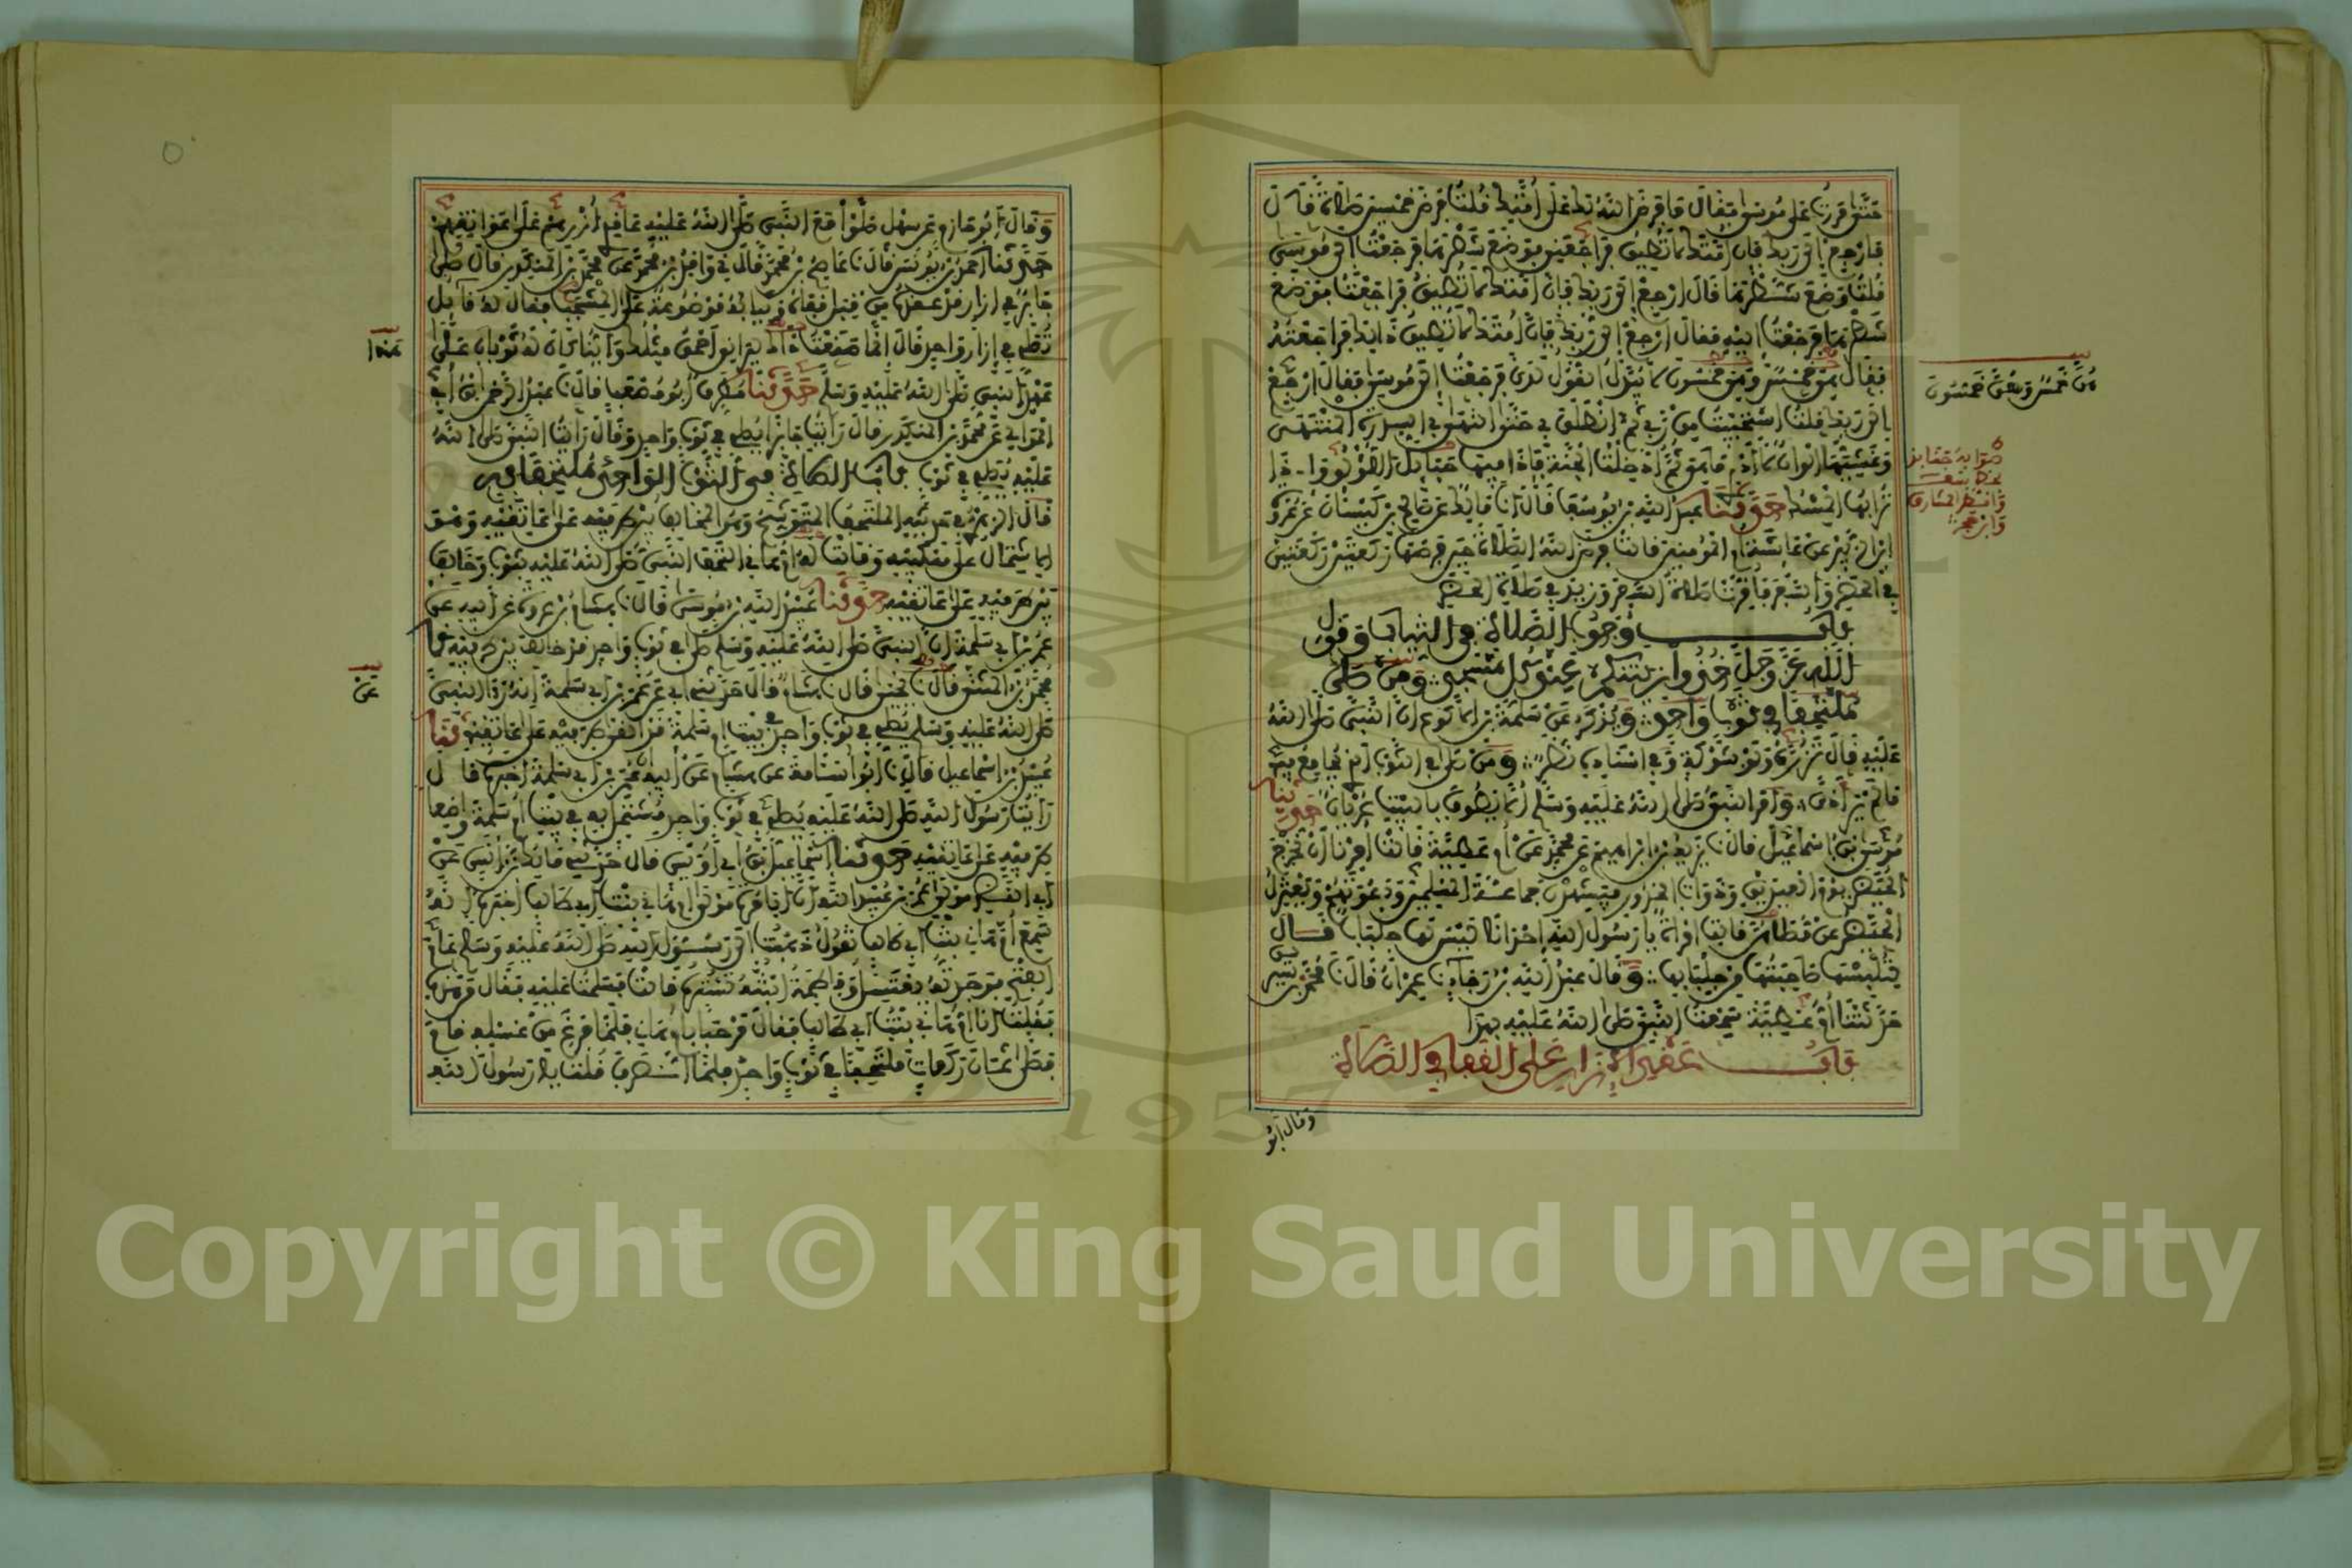 حتى مررت على موسى فقال ما فرض الله لك على أمتك قلت فرض خمسين صلاة قال
فارجع إلى ربك فإن أمتك لا تطيق فراجعني فوضع شطرها فرجعت إلى موسى
قلت وضع شطرها قال ارجع إلى ربك فإن أمتك لا تطيق فراجعت فوضع
شطرها فرجعت إليه فقال ارجع إلى ربك فإن أمتك لا تطيق ذلك فراجعته
فقال هو خمس وهو خمسون لا يبدل القول لدي فرجعت إلى موسى فقال ارجع
إلى ربك فقلت استحييت من ربي ثم انطلق بي حتى انتهى بي إلى السدرة المنتهى
وغشيها ألوان لا أدري ما هي ثم أدخلت الجنة فإذا فيها حبايل اللؤلؤ وإذا
ترابها المسك حدثنا عبد الله بن يوسف قال نا مالك عن صالح بن كيسان عن عروة
ابن الزبير عن عائشة أم المؤمنين قالت فرض الله الصلاة حين فرضها ركعتين ركعتين
في الحضر والسفر فأقرت صلاة السفر وزيد في صلاة الحضر
باب وجوب الصلاة في الثياب وقول
الله عز وجل خذوا زينتكم عند كل مسجد ومن صلى
ملتحفا في ثوب واحد ويذكر عن سلمة بن الأكوع أن النبي صلى الله
عليه قال تزره ولو بشوكة وفي إسناده نظر ومن صلى في الثوب الذي يجامع فيه
ما لم ير أذى وأمر النبي صلى الله عليه وسلم ألا يطوف بالبيت عريان حدثنا
موسى بن إسماعيل قال نا يزيد بن إبراهيم عن محمد عن أم عطية قالت أمرنا أن نخرج
الحيض يوم العيدين وذوات الخدور فيشهدن جماعة المسلمين ودعوتهم وتعتزل
الحيض عن مصلاهن قالت امرأة يا رسول الله إحدانا ليس لها جلباب قال
لتلبسها صاحبتها من جلبابها وقال عبد الله بن رجاء نا عمران قال نا محمد بن سيرين
حدثتنا أم عطية سمعت النبي صلى الله عليه بهذا
باب عقد الإزار على القفا في الصلاة
وقال أبو
هن خمس وهن خمسون
صوابه جنابذ
وانظر المشارق
وابن حجر
وقال أبو حازم عن سهل صلوا مع النبي صلى الله عليه عاقدي أزرهم على عواتقهم
حدثنا أحمد بن يونس قال نا عاصم بن محمد قال ني واقد بن محمد عن محمد بن المنكدر قال صلى
جابر في إزار قد عقده من قبل قفاه وثيابه موضوعة على المشجب فقال له قائل
تصلي في إزار واحد قال إنما صنعت ذلك ليراني أحمق مثلك وأينا كان له ثوبان على
عهد النبي صلى الله عليه وسلم حدثنا مطرف أبو مصعب قال نا عبد الرحمن بن أبي
الموالي عن محمد بن المنكدر قال رأيت جابرا يصلي في ثوب واحد وقال رأيت النبي صلى الله
عليه يصلي في ثوب باب الصلاة في الثوب الواحد ملتحفا به
قال الزهري في حديثه الملتحف المتوشح وهو المخالف بين طرفيه على عاتقيه وهو
الاشتمال على منكبيه وقالت أم هانئ التحف النبي صلى الله عليه بثوب وخالف
بين طرفيه على عاتقيه حدثنا عبيد الله بن موسى قال نا هشام بن عروة عن أبيه عن
عمر بن أبي سلمة أن النبي صلى الله عليه وسلم صلى في ثوب واحد قد خالف بين طرفيه نا
محمد بن المثنى قال نا يحيى قال نا هشام قال حدثني أبي عن عمر بن أبي سلمة أنه رأى النبي
صلى الله عليه وسلم يصلي في ثوب واحد في بيت أم سلمة قد ألقى طرفيه على عاتقيه نا
عبيد بن إسماعيل قال نا أبو أسامة عن هشام عن أبيه أن عمر بن أبي سلمة أخبره قال
رأيت رسول الله صلى الله عليه يصلي في ثوب واحد مشتمل به في بيت أم سلمة واضعا
طرفيه على عاتقيه حدثنا إسماعيل بن أبي أويس قال حدثني مالك بن أنس عن
أبي النضر مولى عمر بن عبيد الله أن أبا مرة مولى أم هانئ بنت أبي طالب أخبره أنه
سمع أم هانئ بنت أبي طالب تقول ذهبت إلى رسول الله صلى الله عليه وسلم عام
الفتح فوجدته يغتسل وفاطمة ابنته تستره قالت فسلمت عليه فقال من هذه
فقلت أنا أم هانئ بنت أبي طالب فقال مرحبا بأم هانئ فلما فرغ من غسله قام
فصلى ثمان ركعات ملتحفا في ثوب واحد فلما انصرف قلت يا رسول الله
هذا
عن
Copyright © King Saud University
1957